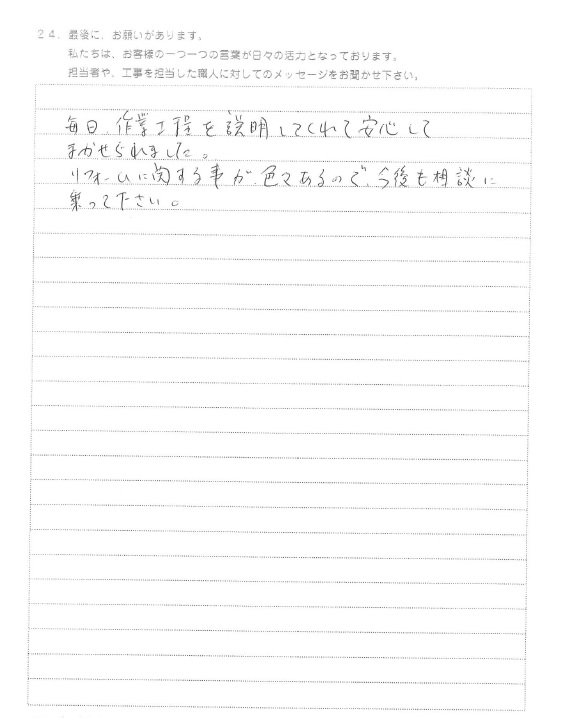 24. 最後に、お願いがあります。
私たちは、お客様の一つ一つの言葉が日々の活力となっております。
担当者や、工事を担当した職人に対してのメッセージをお聞かせ下さい。
毎日、作業工程を説明してくれて安心して
まかせられました。
リフォームに関する事が、色々あるので、今後も相談に
乗って下さい。